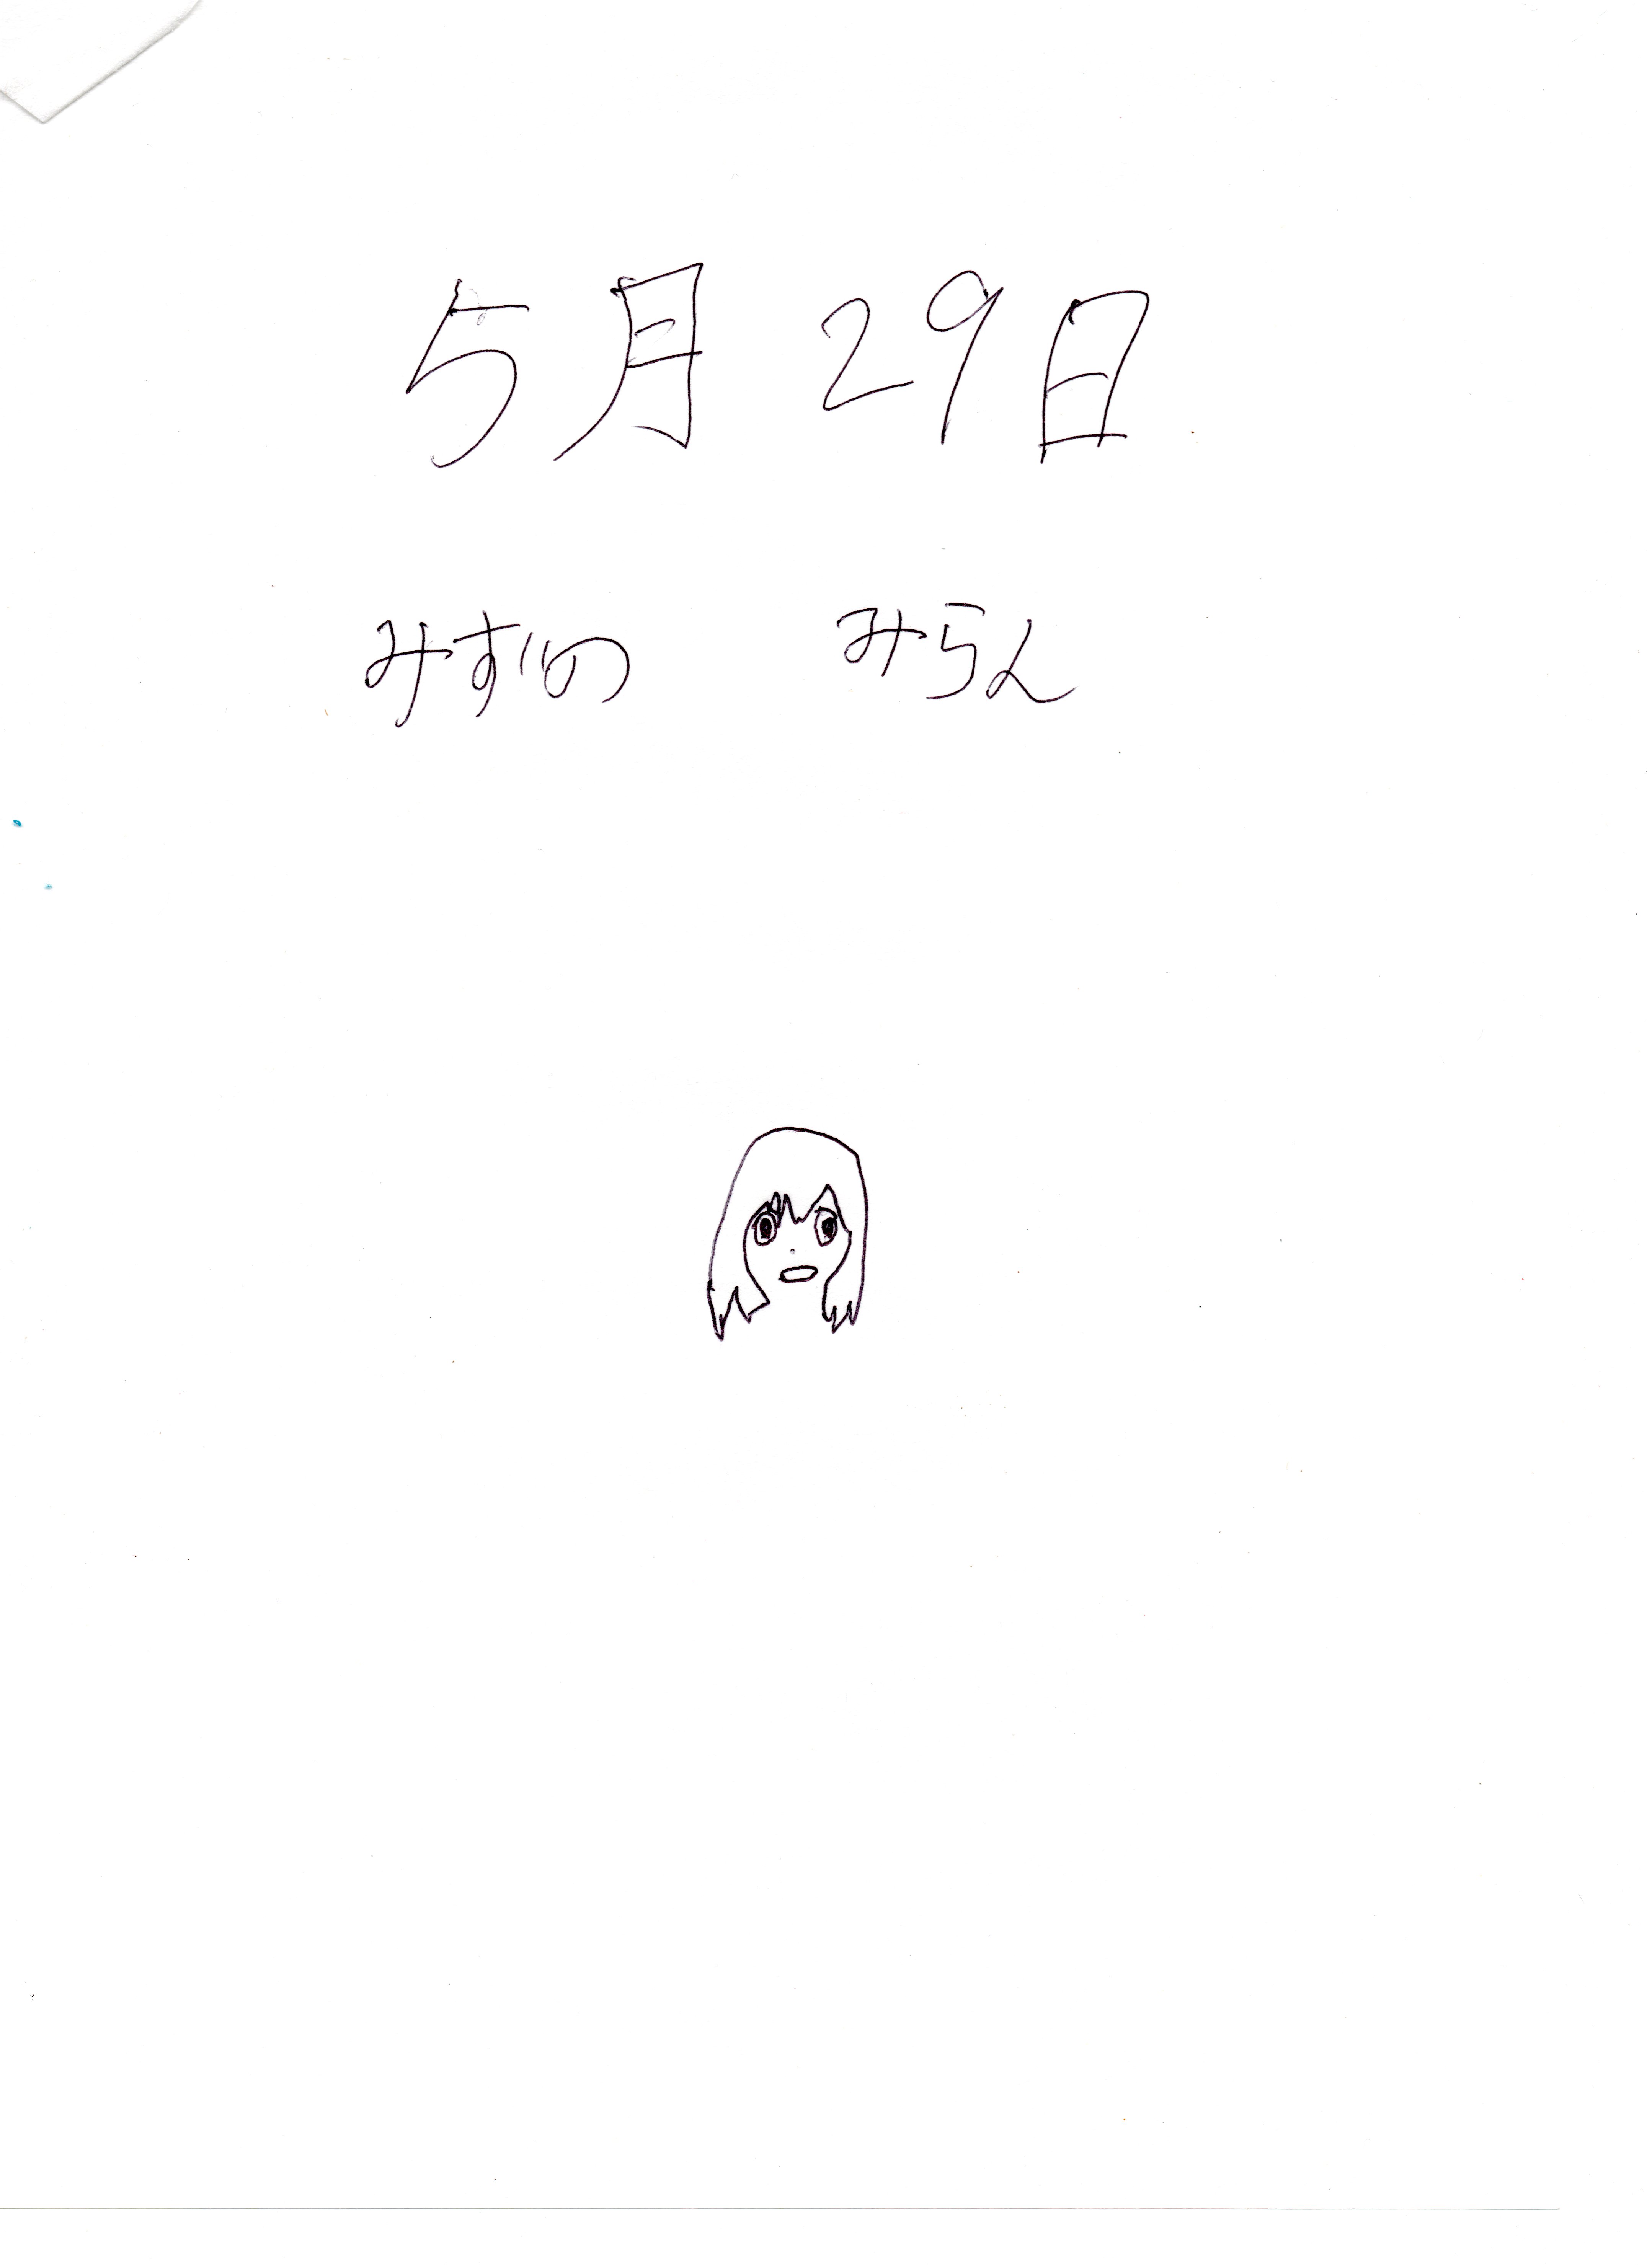 5月 29日
みずの みらん